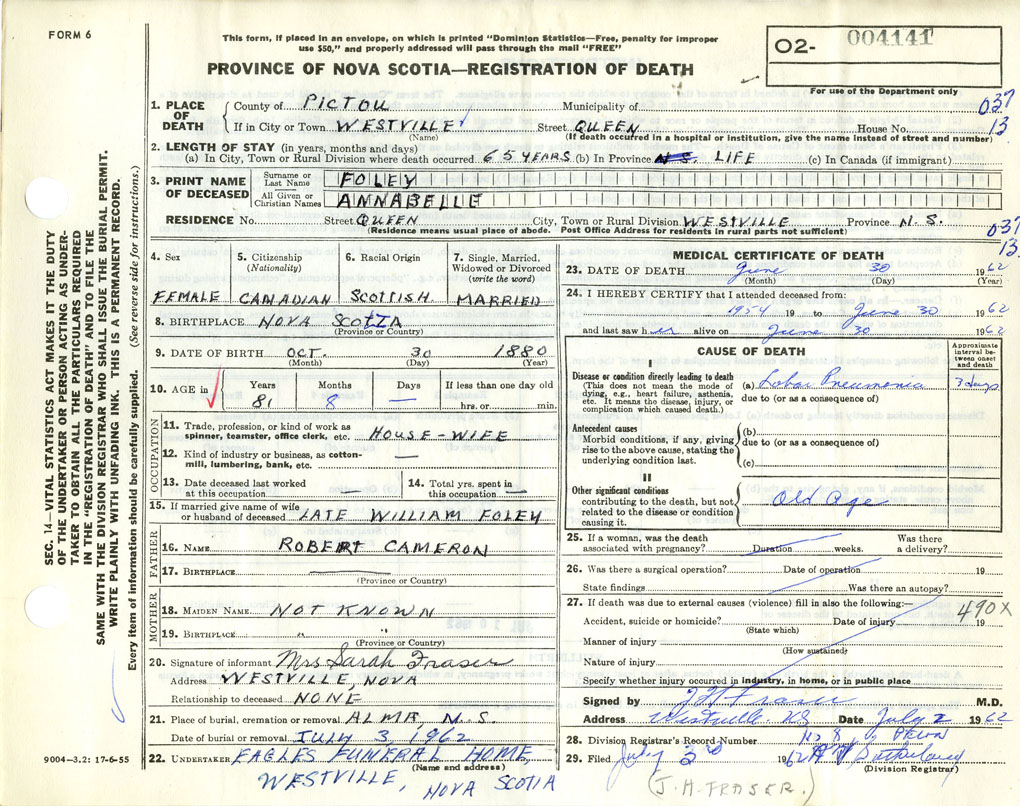 FORM 6
This form, if placed in an envelope, on which is printed "Dominion Statistics—Free, penalty for improper
use $50," and properly addressed will pass through the mail "FREE"
PROVINCE OF NOVA SCOTIA—REGISTRATION OF DEATH
O2- 004141
For use of the Department only
SEC. 14—VITAL STATISTICS ACT MAKES IT THE DUTY
OF THE UNDERTAKER OR PERSON ACTING AS UNDER-
TAKER TO OBTAIN ALL THE PARTICULARS REQUIRED
IN THE "REGISTRATION OF DEATH" AND TO FILE THE
SAME WITH THE DIVISION REGISTRAR WHO SHALL ISSUE THE BURIAL PERMIT.
WRITE PLAINLY WITH UNFADING INK. THIS IS A PERMANENT RECORD.
Every item of information should be carefully supplied. (See reverse side for instructions.)
1. PLACE OF DEATH
County of PICTOU Municipality of
037
If in City or Town WESTVILLE Street QUEEN House No.
13
(Name) (If death occurred in a hospital or institution, give the name instead of street and number)
2. LENGTH OF STAY (in years, months and days)
(a) In City, Town or Rural Division where death occurred 65 YEARS (b) In Province N.S. LIFE (c) In Canada (if immigrant)
3. PRINT NAME OF DECEASED
Surname or Last Name FOLEY
All Given or Christian Names ANNABELLE
RESIDENCE No. Street QUEEN City, Town or Rural Division WESTVILLE Province N.S.
037
13
(Residence means usual place of abode. Post Office Address for residents in rural parts not sufficient)
4. Sex FEMALE
5. Citizenship (Nationality) CANADIAN
6. Racial Origin SCOTTISH
7. Single, Married, Widowed or Divorced (write the word) MARRIED
8. BIRTHPLACE NOVA SCOTIA
(Province or Country)
9. DATE OF BIRTH OCT. 30 1880
(Month) (Day) (Year)
10. AGE in Years Months Days If less than one day old
81 8 — hrs. or min.
OCCUPATION
11. Trade, profession, or kind of work as
spinner, teamster, office clerk, etc. HOUSE-WIFE
12. Kind of industry or business, as cotton-
mill, lumbering, bank, etc. —
13. Date deceased last worked
at this occupation —
14. Total yrs. spent in
this occupation —
15. If married give name of wife
or husband of deceased LATE WILLIAM FOLEY
FATHER
16. NAME ROBERT CAMERON
17. BIRTHPLACE
(Province or Country)
MOTHER
18. MAIDEN NAME NOT KNOWN
19. BIRTHPLACE " "
(Province or Country)
20. Signature of informant Mrs Sarah Fraser
Address WESTVILLE, NOVA
Relationship to deceased NONE
21. Place of burial, cremation or removal ALMA, N.S.
Date of burial or removal JULY 3, 1962
22. UNDERTAKER EAGLES FUNERAL HOME,
(Name and address)
WESTVILLE, NOVA SCOTIA
9004-3.2: 17-6-55
MEDICAL CERTIFICATE OF DEATH
23. DATE OF DEATH June 30 1962
(Month) (Day) (Year)
24. I HEREBY CERTIFY that I attended deceased from:
1954 19 to June 30 1962
and last saw her alive on June 30 1962
CAUSE OF DEATH
Approximate interval between onset and death
I
Disease or condition directly leading to death
(This does not mean the mode of
dying, e.g., heart failure, asthenia,
etc. It means the disease, injury, or
complication which caused death.)
(a) Lobar Pneumonia 3 days
due to (or as a consequence of)
Antecedent causes
Morbid conditions, if any, giving
rise to the above cause, stating the
underlying condition last.
(b)
due to (or as a consequence of)
(c)
II
Other significant conditions
contributing to the death, but not
related to the disease or condition
causing it.
Old Age
25. If a woman, was the death
associated with pregnancy? Duration weeks. Was there
a delivery?
26. Was there a surgical operation? Date of operation
State findings Was there an autopsy?
27. If death was due to external causes (violence) fill in also the following:—
490X
Accident, suicide or homicide? Date of injury 19
(State which)
Manner of injury
(How sustained)
Nature of injury
Specify whether injury occurred in industry, in home, or in public place
Signed by J H Fraser M.D.
Address Westville NS Date July 2 1962
28. Division Registrar's Record Number No 8
29. Filed July 3rd 1962
(Division Registrar)
(J.H. FRASER.)